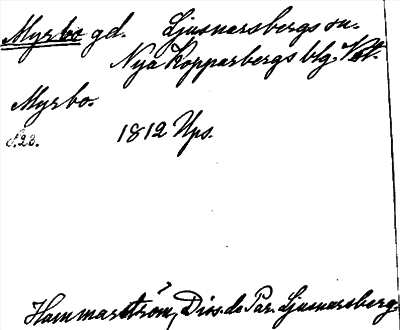 Myrbo gd. Ljusnarsbergs sn.
Nya Kopparbergs blg. Vstl.
Myrbo.
S. 23. 1812 Ups.
Hammarström, Diss. de Par. Ljusnarsberg